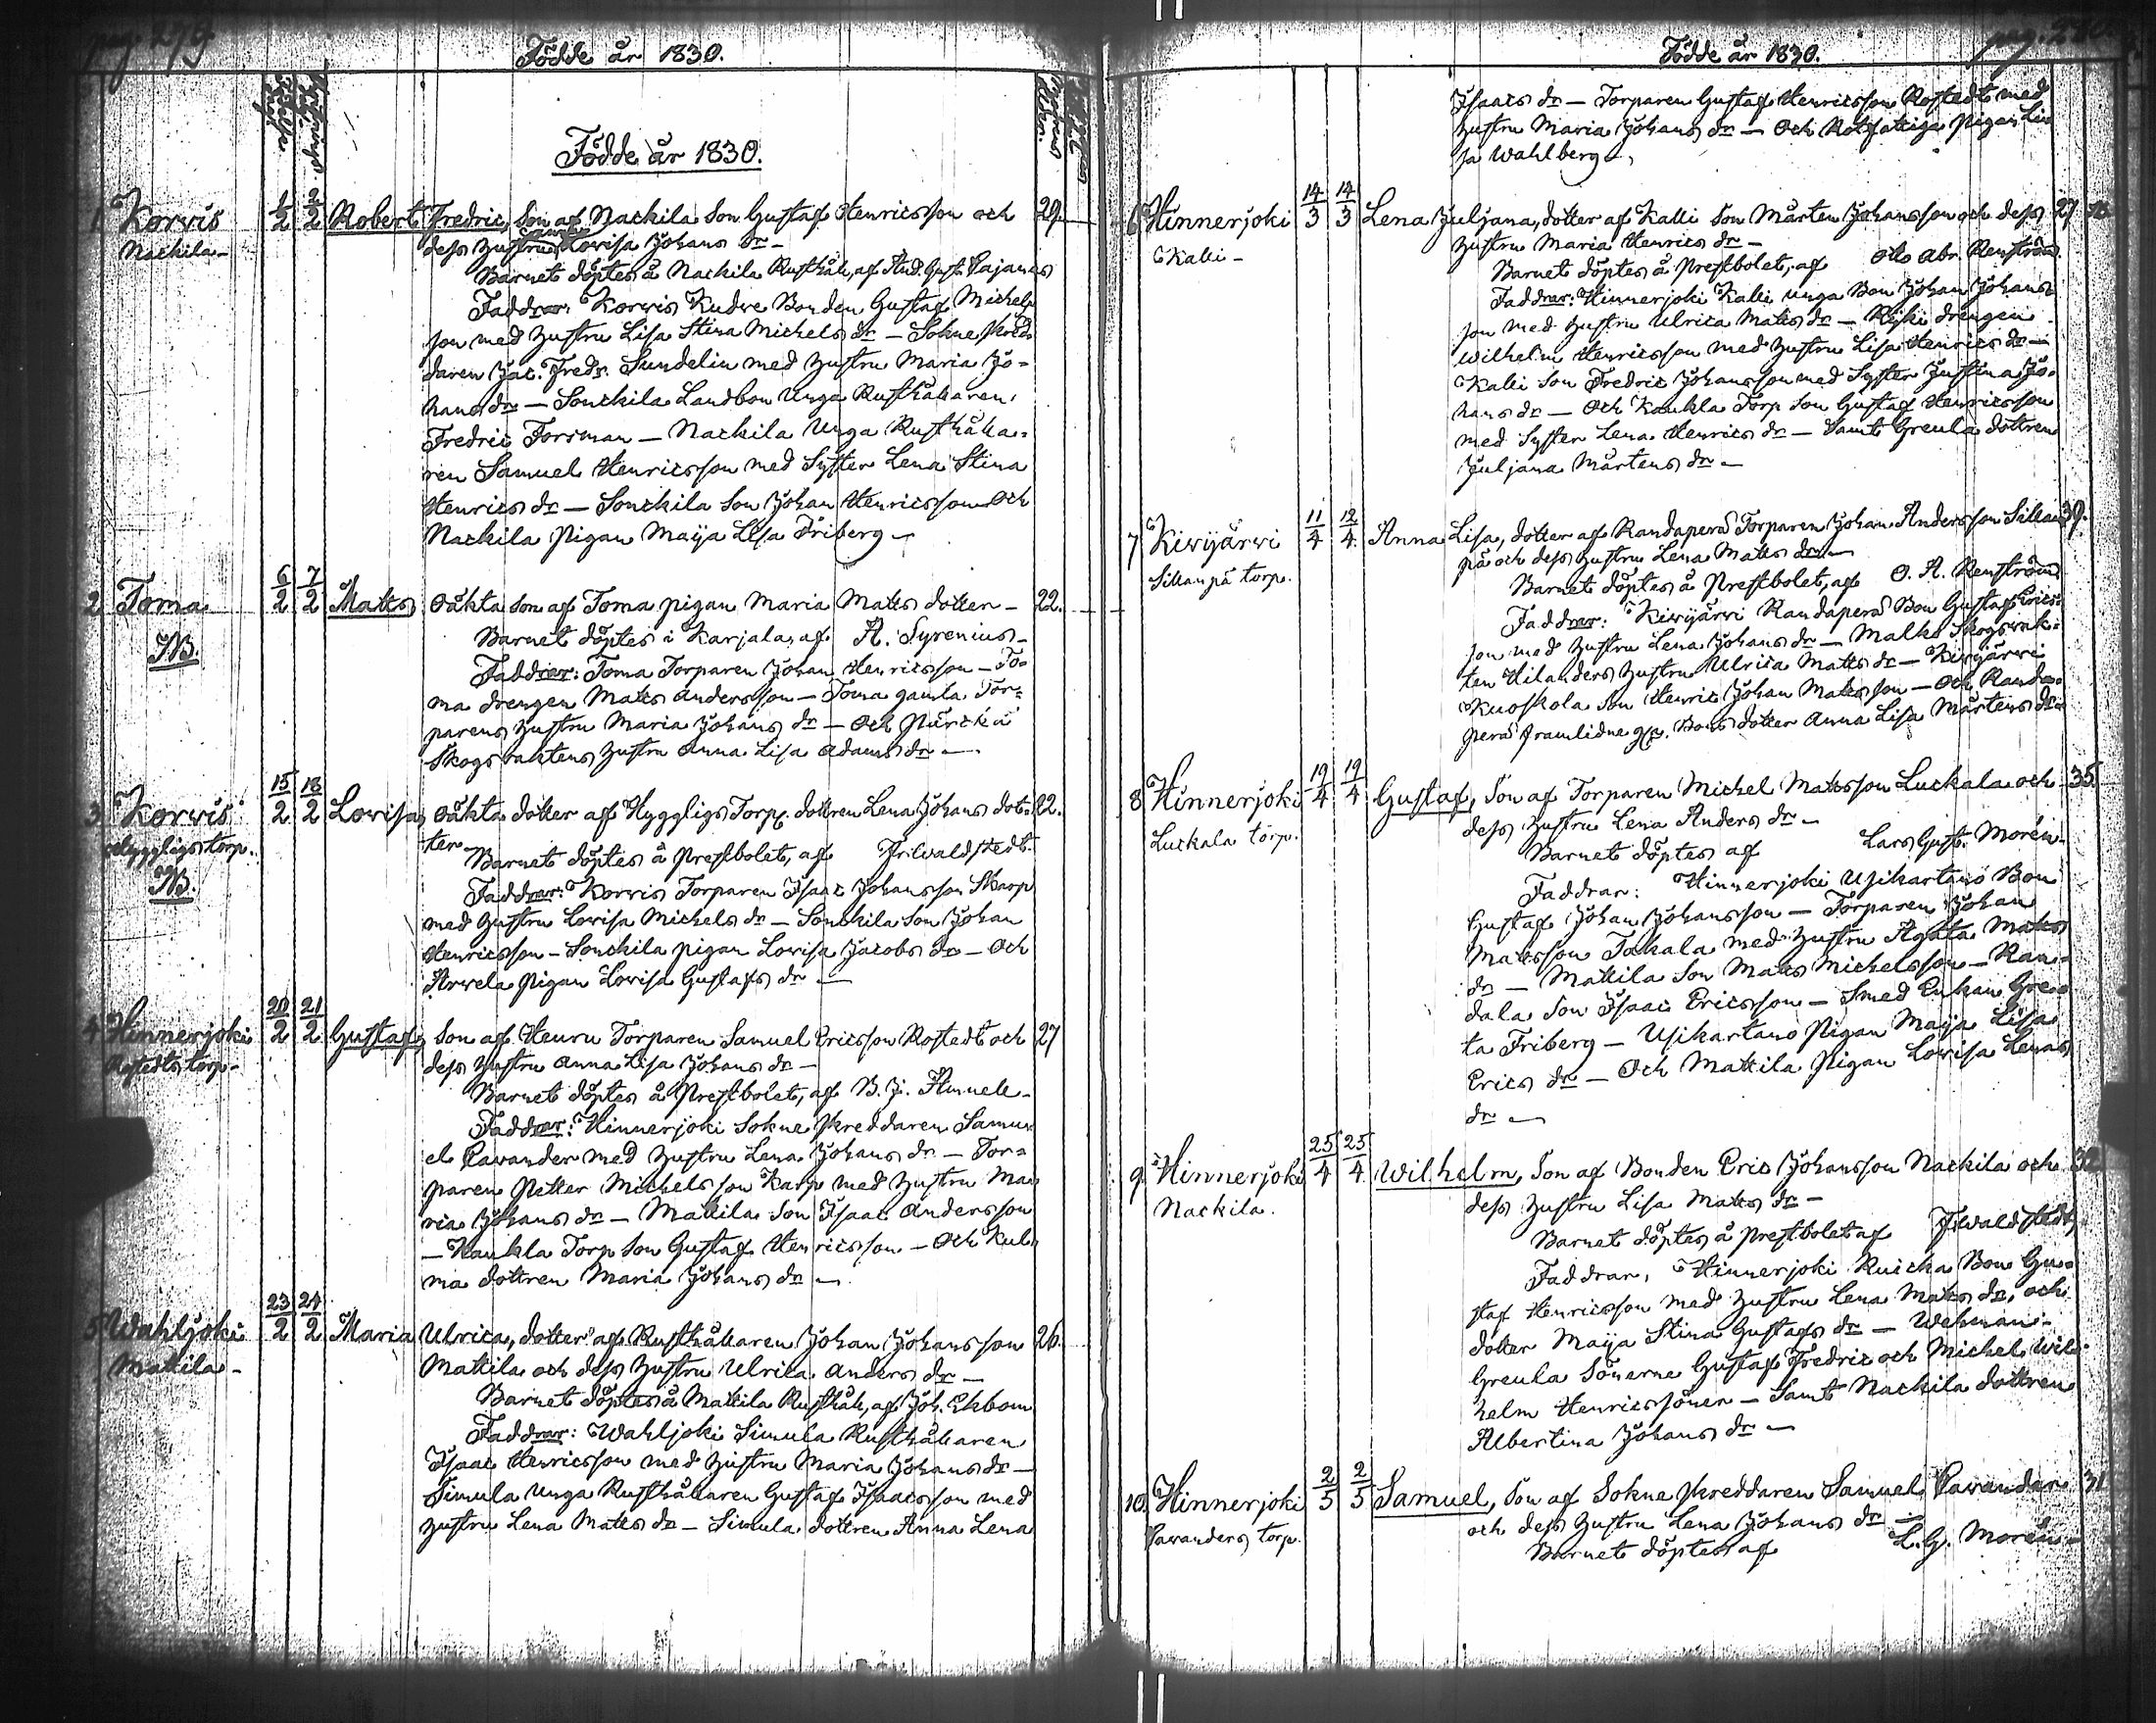 pag. 279.
Födde år 1830.
Födde år 1830.
1 Korvis 1/2 2/2 Robert Fredric, Son af Nackila Son Gustaf Henricsson och 29.
Nackila - dess hustru Lovisa Johans dr -
Barnet döptes å Nackila Rusthåll, af And. Gust. Cajanus
Faddrar: Korvis Kudve Bonden Gustaf Michels
son med hustru Lisa Stina Michels dr - Sokne skred-
daren Jac. Fredr. Sundelin med hustru Maria Jo-
hans dr - Sonckila Landbon Unga Rusthållaren
Fredric Forsman - Nackila Unga Rusthålla-
ren Samuel Henricsson med Syster Lena Stina
Henrics dr - Sonckila Son Johan Henricsson Och
Nackila Pigan Maija Lisa Friberg -
2 Toma 6/2 7/2 Matts, Oäkta Son af Toma pigan Maria Matts dotter - 22.
NB. Barnet döptes i Karjala, af A. Syrenius -
Faddrar: Toma Torparen Johan Henricsson - To-
ma drengen Matts Andersson - Toma gamla Tor-
parens hustru Maria Johans dr - Och Pärckä
Skogsvaktens hustru Anna Lisa Adams dr -
3 Korvis 15/2 18/2 Lovisa, Oäkta dotter af Hyggligs Torp. dottren Lena Johans dot- 22.
Hyggligs torp. ter -
NB. Barnet döptes å Prestbolet, af Fr. Waldstedt.
Faddrar: Korvis Torparen Isaac Johansson Skarp
med hustru Lovisa Michels dr - Sonckila Son Johan
Henricsson - Sonckila pigan Lovisa Jacobs dr - Och
Arvela Pigan Lovisa Gustafs dr -
4 Hinnerjoki 20/2 21/2 Gustaf, Son af Heuru Torparen Samuel Ericsson Rostedt och 27
Rostedts torp - dess hustru Anna Lisa Johans dr -
Barnet döptes å Prestbolet, af B. J. Amnell -
Faddrar: Hinnerjoki Sokne skreddaren Samu-
el Cavander med hustru Lena Johans dr - Tor-
paren Petter Michelsson Karp med hustru Ma-
ria Johans dr - Mattila Son Isaac Andersson
- Kaukla Torp Son Gustaf Henricsson - Och Kul-
ma dottren Maria Johans dr -
5 Wahljoki 23/2 24/2 Maria Ulrica, dotter af Rusthållaren Johan Johansson 26.
Mattila - Mattila och dess hustru Ulrica Anders dr -
Barnet döptes å Mattila Rusthåll, af Joh. Ekbom
Faddrar: Wahljoki Simula Rusthållaren
Isaac Henricsson med hustru Maria Johans dr -
Simula Unga Rusthållaren Gustaf Isaacsson med
hustru Lena Matts dr - Simula dottren Anna Lena
Födde år 1830.
Isaacs dr - Torparen Gustaf Henricsson Rostedt med
hustru Maria Johans dr - Och Rotfattiga Pigan Lis
sa Wahlberg -
6 Hinnerjoki 14/3 14/3 Lena Juljana, dotter af Kalli Son Mårten Johansson och dess 27
Kalli - hustru Maria Henrics dr -
Barnet döptes å Prestbolet, af Otto Abr. Renström.
Faddrar: Hinnerjoki Kalli Unga Bon Johan Johans-
son med hustru Ulrica Matts dr - Rijki drengen
Wilhelm Henricsson med hustru Lisa Henrics dr -
Kalli Son Fredric Johansson med Syster Justina Jo-
hans dr - Och Kaukla Torp Son Gustaf Henricsson
med Syster Lena Henrics dr - Samt Greula dottren
Juljana Mårtens dr -
7 Kivijärvi 11/4 12/4 Anna Lisa, dotter af Randaperä Torparen Johan Andersson Sillan 39.
Sillanpä torp. pä och dess hustru Lena Matts dr -
Barnet döptes å Prestbolet, af O. A. Renström
Faddrar: Kivijärvi Randaperä Bon Gustaf Erics-
son med hustru Lena Johans dr - Malko Skogsvak-
ten Hilanders hustru Ulrica Matts dr - Kivijärvi
Knoskola Son Henric Johan Mattsson - Och Randa-
perä framlidne Bons dotter Anna Lisa Mårtens dr
8 Hinnerjoki 19/4 19/4 Gustaf, Son af Torparen Michel Mattsson Luckala och 35.
Luckala torp. dess hustru Lena Anders dr -
Barnet döptes af Lars Gust. Morén -
Faddrar: Hinnerjoki Usikartano Bon
Gustaf Johan Johansson - Torparen Johan
Mattsson Takala med hustru Agata Matts
dr - Mattila Son Matts Michelsson - Ran-
dala Son Isaac Ericsson - Smed Enkan Gre-
ta Friberg - Usikartano Pigan Maija Lisa
Erics dr - Och Mattila Pigan Lovisa Lenas
dr -
9 Hinnerjoki 25/4 25/4 Wilhelm, Son af Bonden Eric Johansson Nackila och 32
Nackila. dess hustru Lisa Matts dr -
Barnet döptes å Prestbolet af F. Waldstedt
Faddrar, Hinnerjoki Ruicka Bon Gu-
staf Henricsson med hustru Lena Matts dr, och
dotter Maija Stina Gustafs dr - Wehmani-
Greula Sönerne Gustaf Fredric och Michel Wil-
helm Henricssöner - Samt Nackila dottren
Albertina Johans dr -
10. Hinnerjoki 2/5 2/5 Samuel, Son af Sokne skreddaren Samuel Cavander 31
Cavanders torp. och dess hustru Lena Johans dr -
Barnet döptes af L. G. Morén -